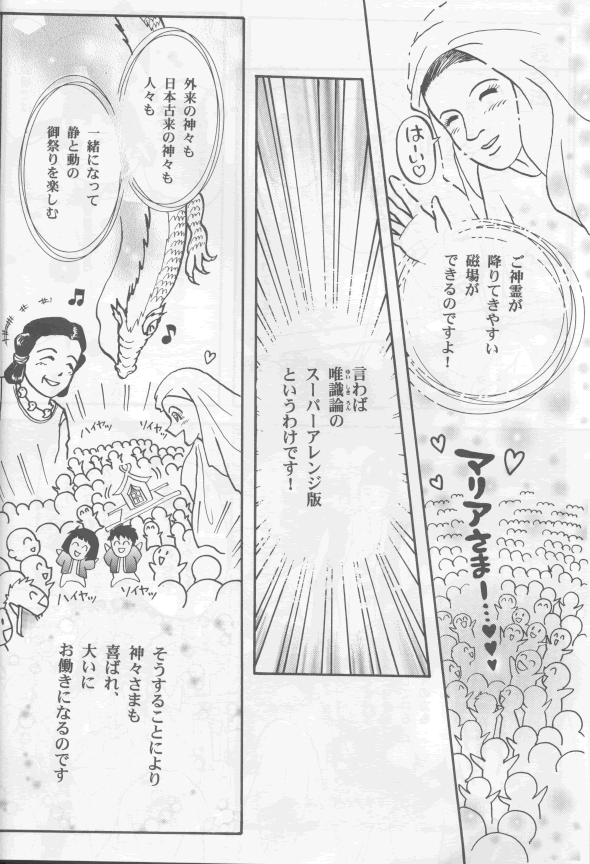 はーい♡
ご神霊が
降りてきやすい
磁場が
できるのですよ!
マリアさまー…♥♥♥
言わば
唯識論の
ゆいしきろん
スーパーアレンジ版
というわけです!
外来の神々も
日本古来の神々も
人々も
一緒になって
静と動の
御祭りを楽しむ
ハイヤッ
ソイヤッ
ハイヤッ
ソイヤッ
そうすることにより
神々さまも
喜ばれ、
大いに
お働きになるのです